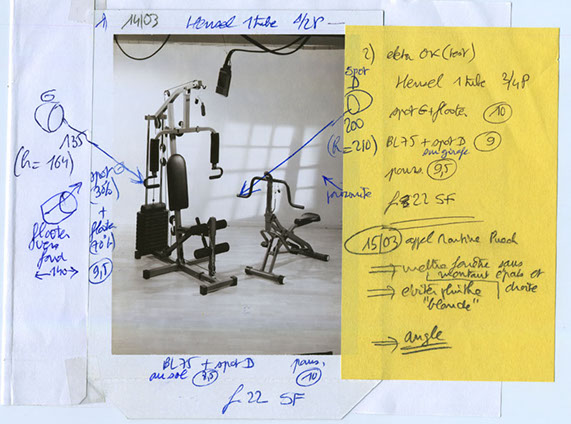 1) 14/03 Hensel 1 tube 4/28
G
135
(h = 164)
spot
(30%)
+
flooter
(70%)
9,5
flooter
vers
fond
140
spot
D
200
(h = 210)
BL75 + spot D
au sol 9,5
paus.
10
f. 22 SF
2) ekta OK (test)
Hensel 1 tube 3/48
spot G + flooter 10
BL75 + spot D 9
sur girafe
paus. 9,5
f 22 SF
15/03 appel Martine
⇒ mettre fenêtre sans
montant épais et
⇒ éviter plinthe droite
"blonde"
⇒ angle